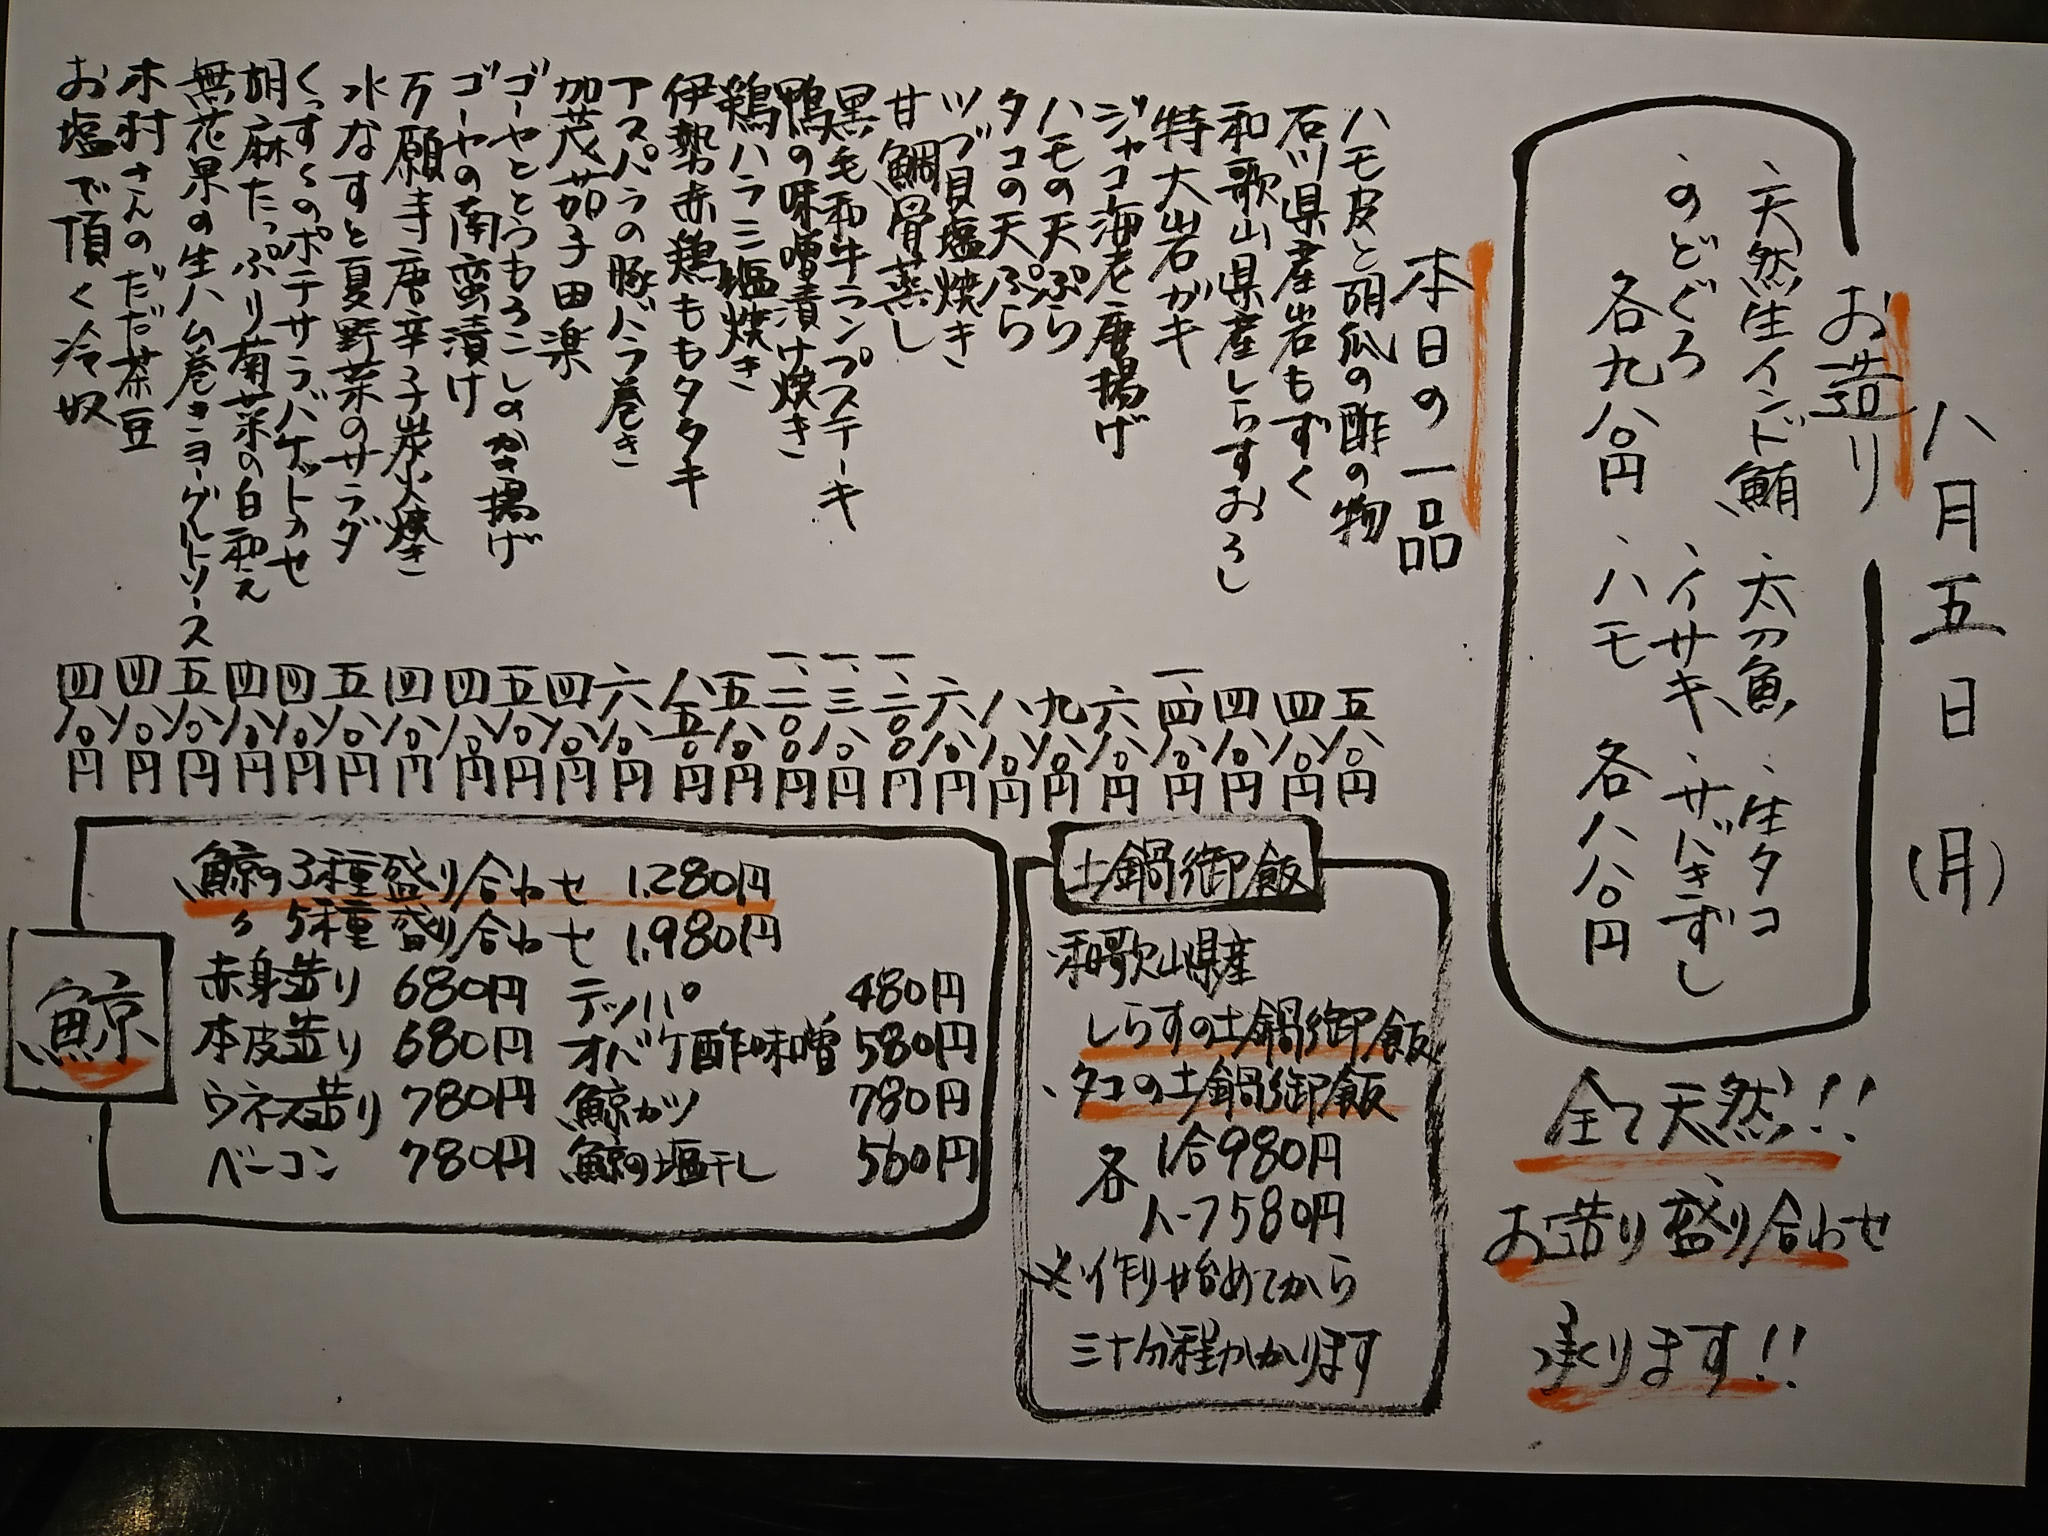 八月五日(月)
お造り
・天然生インド鮪 ・太刀魚 ・生タコ
・のどぐろ ・イサキ ・サバきずし
各九八〇円 ・ハモ 各八八〇円
全て天然!!
お造り盛り合わせ
承ります!!
本日の一品
ハモ皮と胡瓜の酢の物 五八〇円
石川県産岩もずく 四八〇円
和歌山県産しらすおろし 四八〇円
特大岩ガキ 一、四八〇円
ジャコ海老唐揚げ 六八〇円
ハモの天ぷら 九八〇円
タコの天ぷら 八八〇円
ツブ貝塩焼き 六八〇円
甘鯛骨蒸し 一、二〇〇円
黒毛和牛ランプステーキ 一、三八〇円
鴨の味噌漬け焼き 一、二〇〇円
鶏ハラミ塩焼き 五八〇円
伊勢赤鶏ももタタキ 八五〇円
アスパラの豚バラ巻き 六八〇円
加茂茄子田楽 四八〇円
ゴーヤととうもろこしのかき揚げ 五八〇円
ゴーヤの南蛮漬け 四八〇円
万願寺唐辛子炭火焼き 四八〇円
水なすと夏野菜のサラダ 五八〇円
くっすぅのポテサラバケットのせ 四八〇円
胡麻たっぷり菊菜の白和え 四八〇円
無花果の生ハム巻きヨーグルトソース 五八〇円
木村さんのだだ茶豆 四八〇円
お塩で頂く冷奴 四八〇円
土鍋御飯
・和歌山県産
しらすの土鍋御飯
・タコの土鍋御飯
各 1合980円
ハーフ580円
※作り始めてから
三十分程かかります
鯨
鯨の3種盛り合わせ 1,280円
〃 5種盛り合わせ 1,980円
赤身造り 680円 テッパ 480円
本皮造り 680円 オバケ酢味噌 580円
ウネス造り 780円 鯨カツ 780円
ベーコン 780円 鯨の塩干し 560円